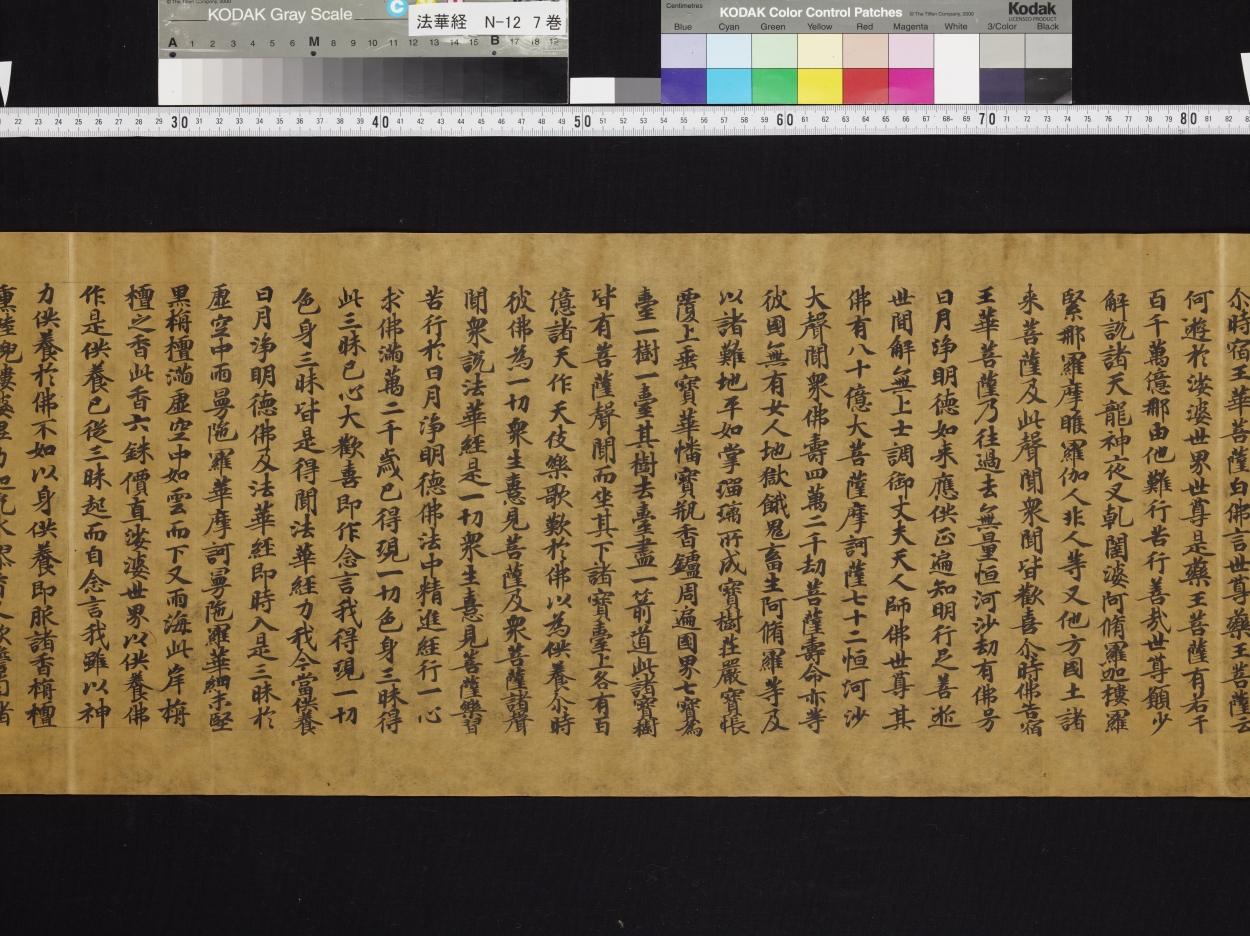 KODAK Gray Scale
法華経 N-12 7巻
A 1 2 3 4 5 6 M 8 9 10 11 12 13 14 15 B 17 18 19
Centimetres
KODAK Color Control Patches
© The Tiffen Company, 2000
Kodak
LICENSED PRODUCT
Blue Cyan Green Yellow Red Magenta White 3/Color Black
22 23 24 25 26 27 28 29 30 31 32 33 34 35 36 37 38 39 40 41 42 43 44 45 46 47 48 49 50 51 52 53 54 55 56 57 58 59 60 61 62 63 64 65 66 67 68 69 70 71 72 73 74 75 76 77 78 79 80 81 82
尒時宿王華菩薩白佛言世尊藥王菩薩云
何遊於娑婆世界世尊是藥王菩薩有若干
百千萬億那由他難行苦行善哉世尊願少
解説諸天龍神夜叉乹闥婆阿脩羅迦樓羅
緊那羅摩睺羅伽人非人等又他方國土諸
来菩薩及此聲聞衆聞皆歡喜尒時佛告宿
王華菩薩乃往過去無量恒河沙劫有佛号
日月浄明德如来應供正遍知明行足善逝
世間解無上士調御丈夫天人師佛世尊其
佛有八十億大菩薩摩訶薩七十二恒河沙
大聲聞衆佛壽四萬二千劫菩薩壽命亦等
彼國無有女人地獄餓鬼畜生阿脩羅等及
以諸難地平如掌瑠璃所成寶樹莊嚴寶帳
覆上垂寶華幡寶瓶香鑪周遍國界七寶為
臺一樹一臺其樹去臺盡一箭道此諸寶樹
皆有菩薩聲聞而坐其下諸寶臺上各有百
億諸天作天伎樂歌歎於佛以為供養尒時
彼佛為一切衆生憙見菩薩及衆菩薩諸聲
聞衆説法華經是一切衆生憙見菩薩樂習
苦行於日月浄明德佛法中精進經行一心
求佛滿萬二千歳已得現一切色身三昧得
此三昧已心大歡喜即作念言我得現一切
色身三昧皆是得聞法華經力我今當供養
日月浄明德佛及法華經即時入是三昧於
虚空中雨曼陁羅華摩訶曼陁羅華細末堅
黒栴檀滿虚空中如雲而下又雨海此岸栴
檀之香此香六銖價直娑婆世界以供養佛
作是供養已從三昧起而自念言我雖以神
力供養於佛不如以身供養即服諸香栴檀